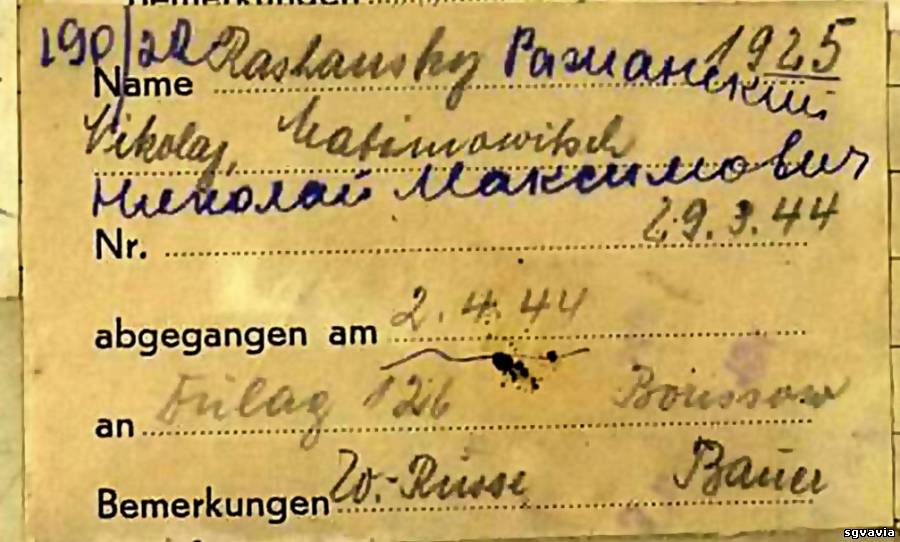 190/22 Rashansky Ражанский 1925
Name
Nikolaj, Maximowitsch
Николай Максимович
Nr. 29.3.44
abgegangen am 2.4.44
an Dulag 126 Borissow
Bemerkungen W.-Russe Bauer
sgvavia